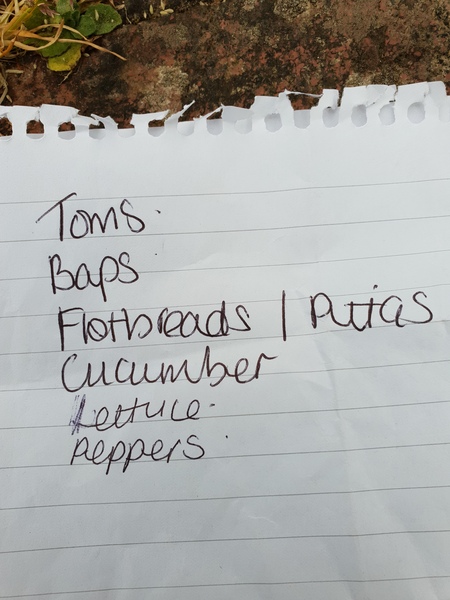 Toms.
Baps
Flatbreads | Pittas
Cucumber
Lettuce.
Peppers.